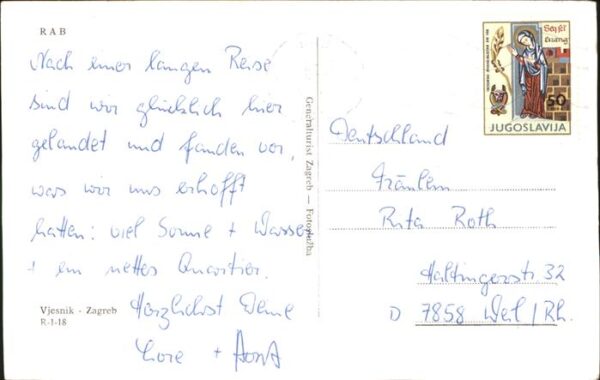 RAB
Nach einer langen Reise
sind wir glücklich hier
gelandet und fanden vor,
was wir uns erhofft
hatten: viel Sonne + Wasser
+ ein nettes Quartier.
Herzlichst Deine
Lore +
Vjesnik - Zagreb
R-1-18
Generalturist Zagreb — Fotoslužba
50
JUGOSLAVIJA
Deutschland
Fräulein
Rita Roth
Haltingerstr 32
D 7858 Weil/Rh.